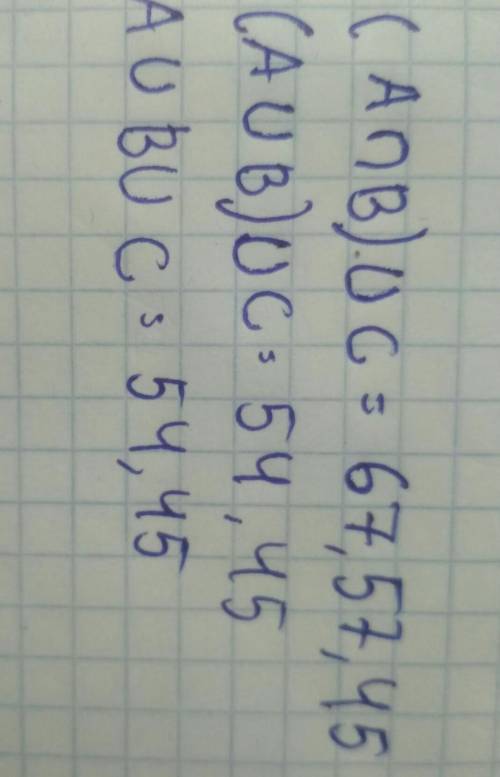 (A∩B)∪C = 67,57,45
(A∪B)∪C = 54,45
A∪B∪C = 54,45